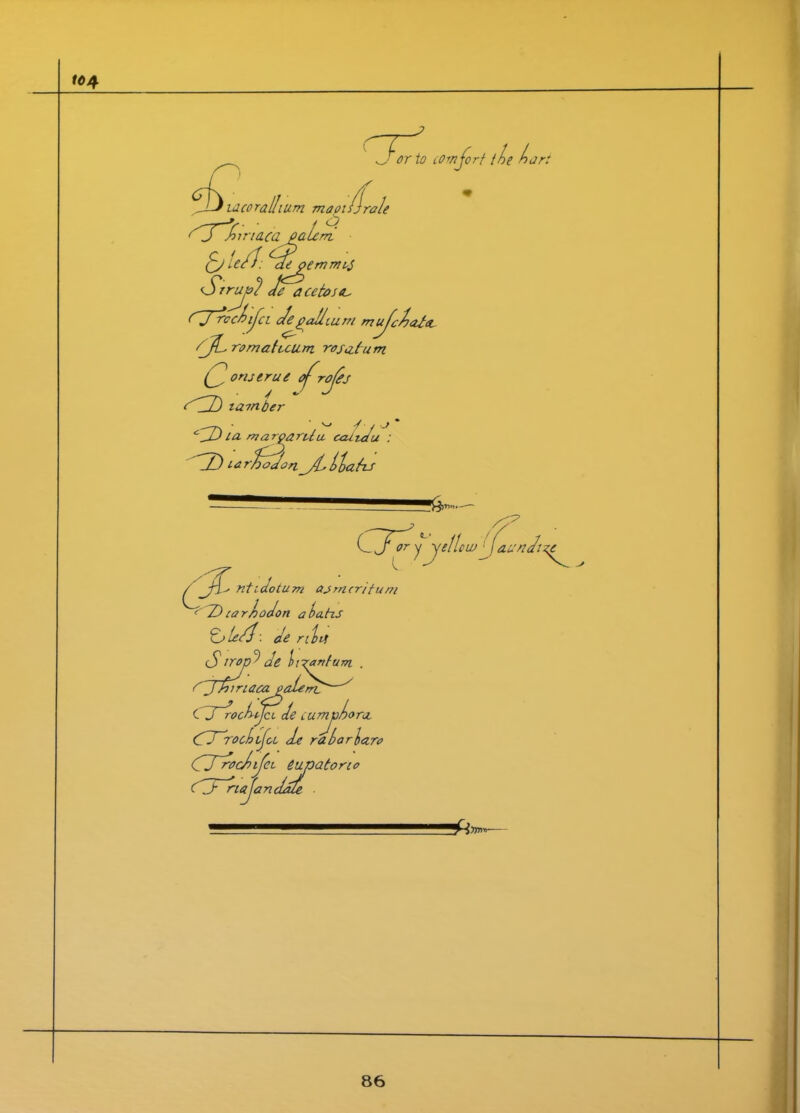 104
For to comfort the hart
Diacorallium magistrale
Thiriaca galem
Elect: de gemmis
Sirupi de acetosa
Trochisci de gallium muschata
Aromaticum rosatum
Conserue of roses
Diamber
Dia margaritu calidu :
Diarhodon Abbatis
For y yellow Jaundize
Antidotum asmcritum
Diarhodon abatis
Elect: de ribis
Sirop de bizantum .
Thiriaca galem
Trochisci de cumphora
Trochisci de rabarbaro
Trochisci eupatorio
Triasandale .
86